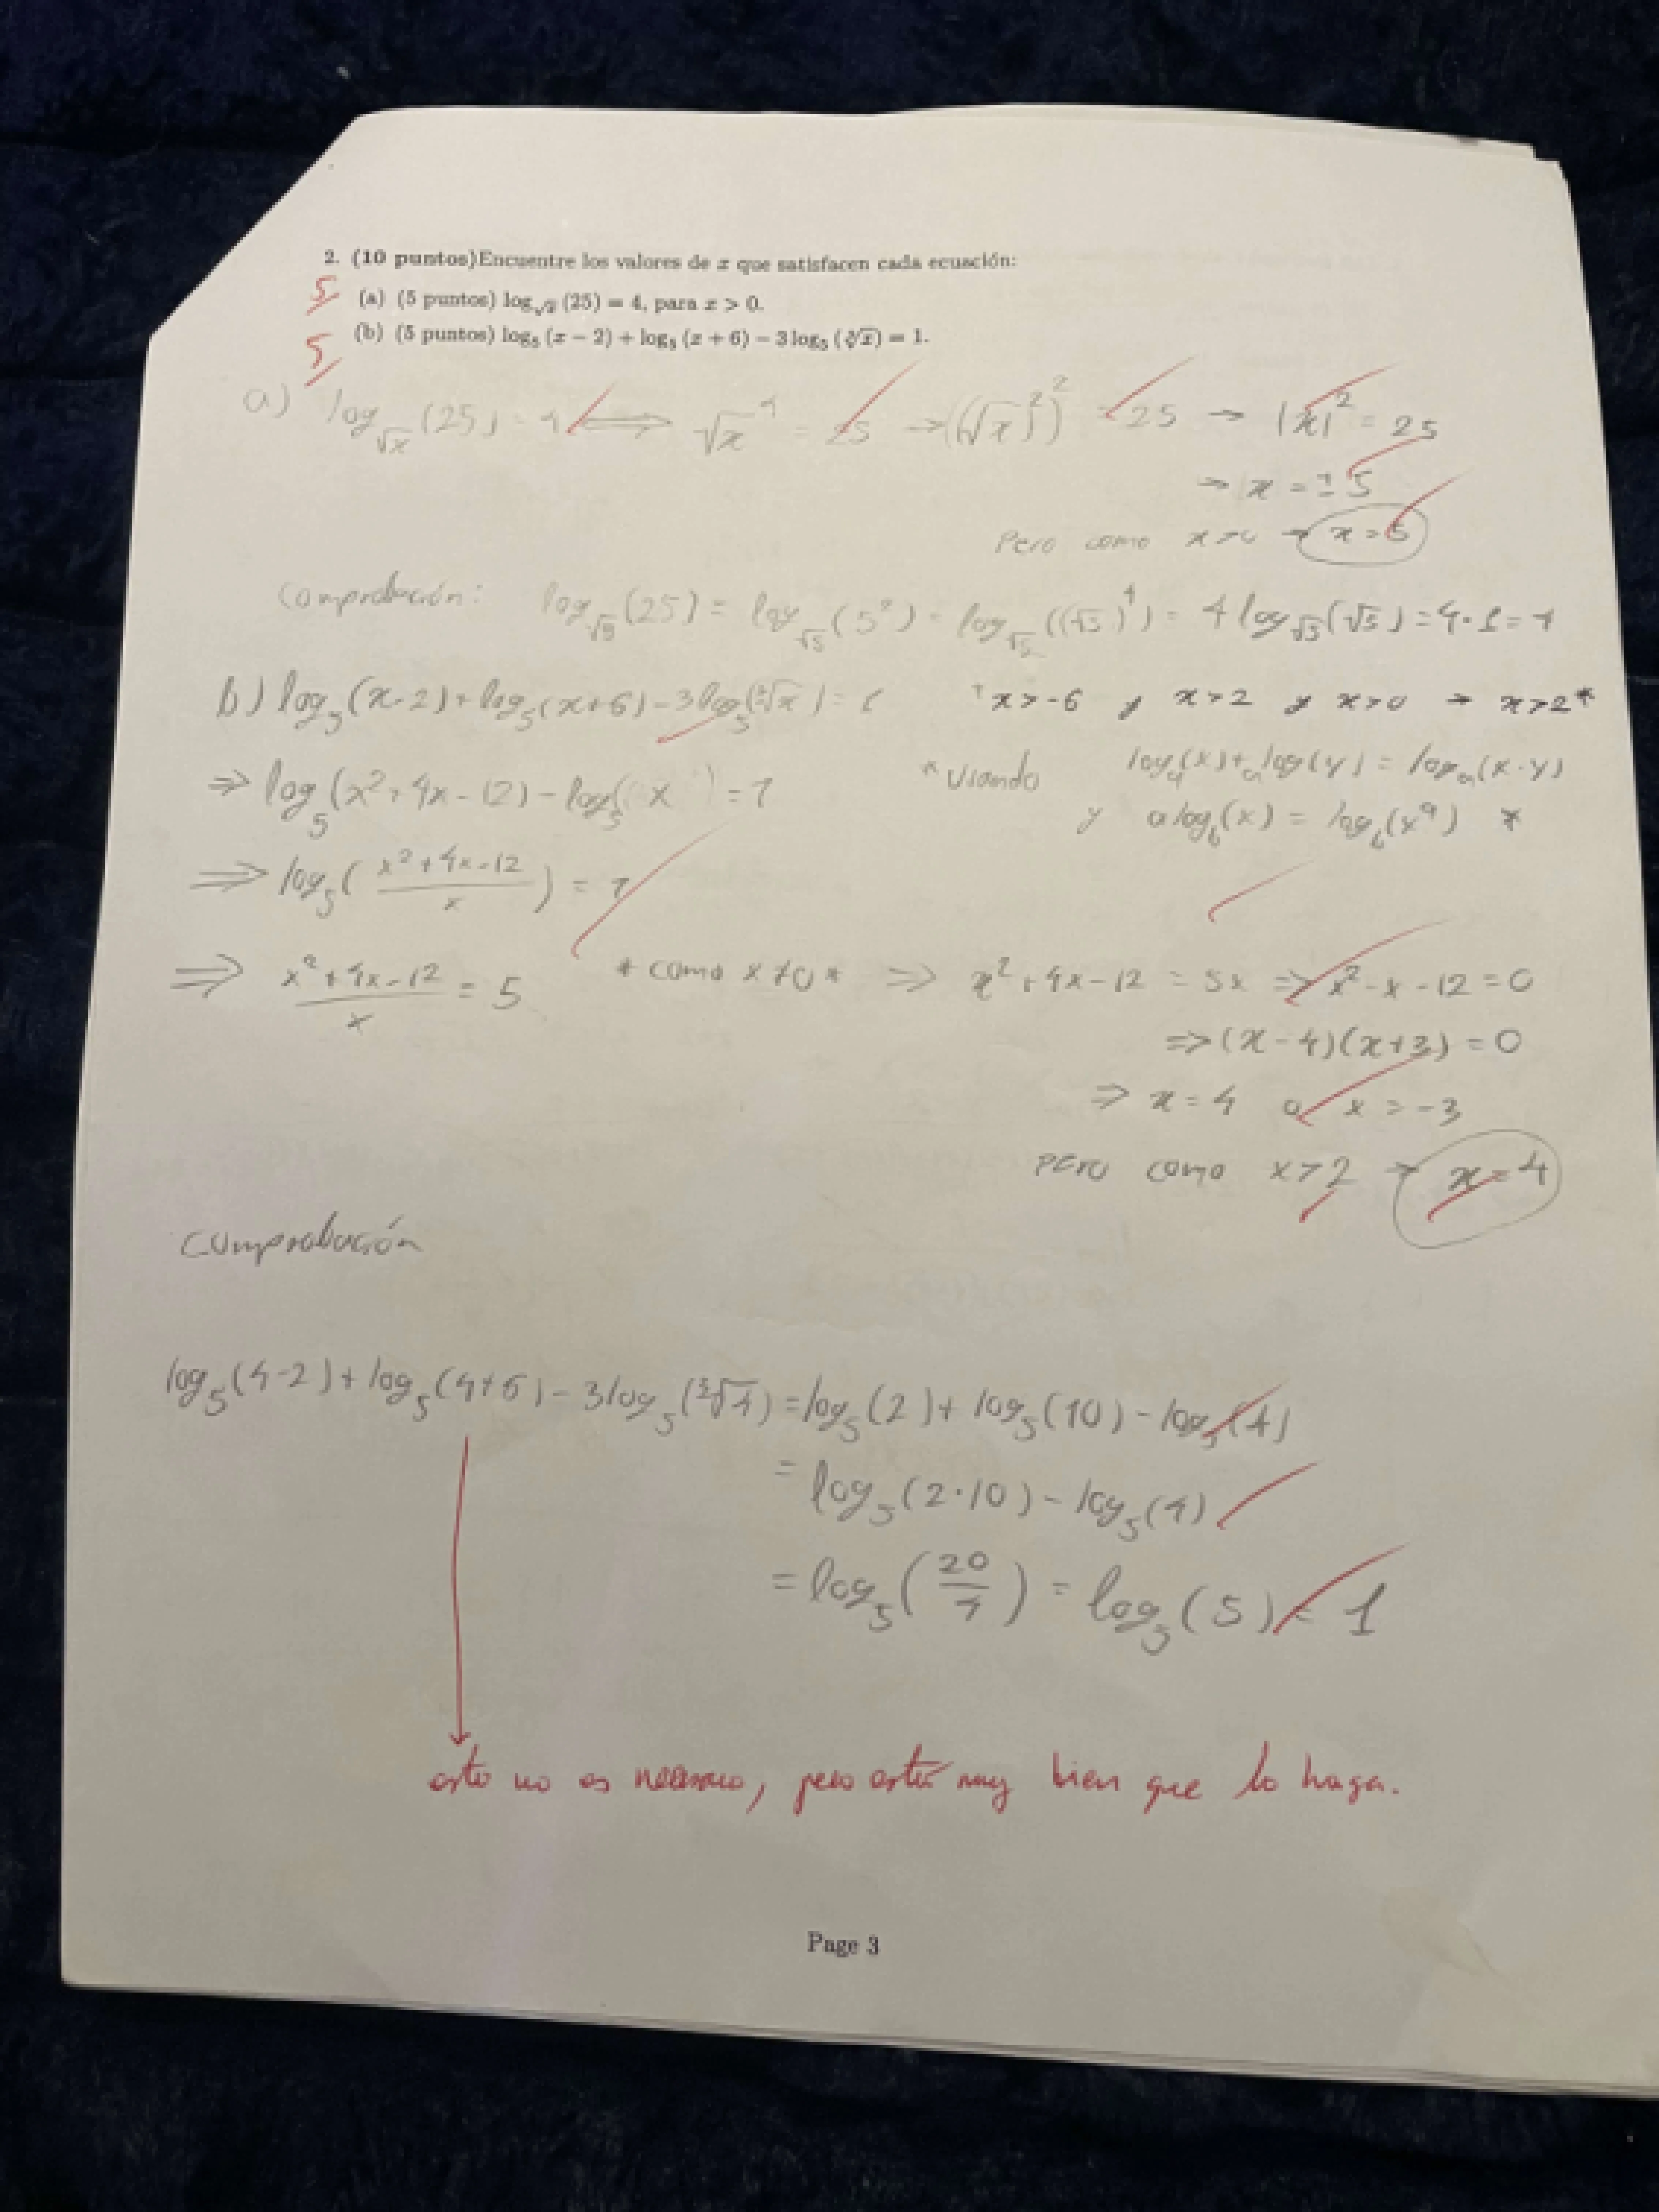 2. (10 puntos)Encuentre los valores de x que satisfacen cada ecuación:
5 (a) (5 puntos) log_√x (25) = 4, para x > 0.
5 (b) (5 puntos) log₅ (x − 2) + log₅ (x + 6) − 3 log₅ (∛x) = 1.
a) log_√x (25) = 4 ⟺ √x⁴ = 25 → ((√x)²)² = 25 → |x|² = 25
→ x = ±5
Pero como x>0 → x=5
Comprobación: log_√5 (25) = log_√5 (5²) = log_√5 ((√5)⁴) = 4 log_√5 (√5) = 4·1 = 4
b) log₅(x-2)+log₅(x+6)-3log₅(∛x) = 1 *x>-6 y x>2 y x>0 → x>2*
⇒ log₅(x²+4x-12) - log₅(x) = 1 *Usando logₐ(x)+logₐ(y) = logₐ(x·y)
y a log_b(x) = log_b(xᵃ) *
⇒ log₅((x²+4x-12)/x) = 1
⇒ (x²+4x-12)/x = 5 *como x≠0* ⇒ x²+4x-12 = 5x ⇒ x²-x-12=0
⇒ (x-4)(x+3) = 0
⇒ x=4 o x=-3
pero como x>2 → x=4
Comprobación
log₅(4-2)+log₅(4+6)-3log₅(∛4) = log₅(2)+log₅(10)-log₅(4)
= log₅(2·10)-log₅(4)
= log₅(20/4) = log₅(5) = 1
esto no es necesario, pero está muy bien que lo haga.
Page 3